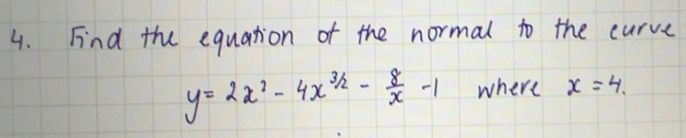 4. Find the equation of the normal to the curve
y = 2x² - 4x^{3/2} - 8/x - 1 where x = 4.